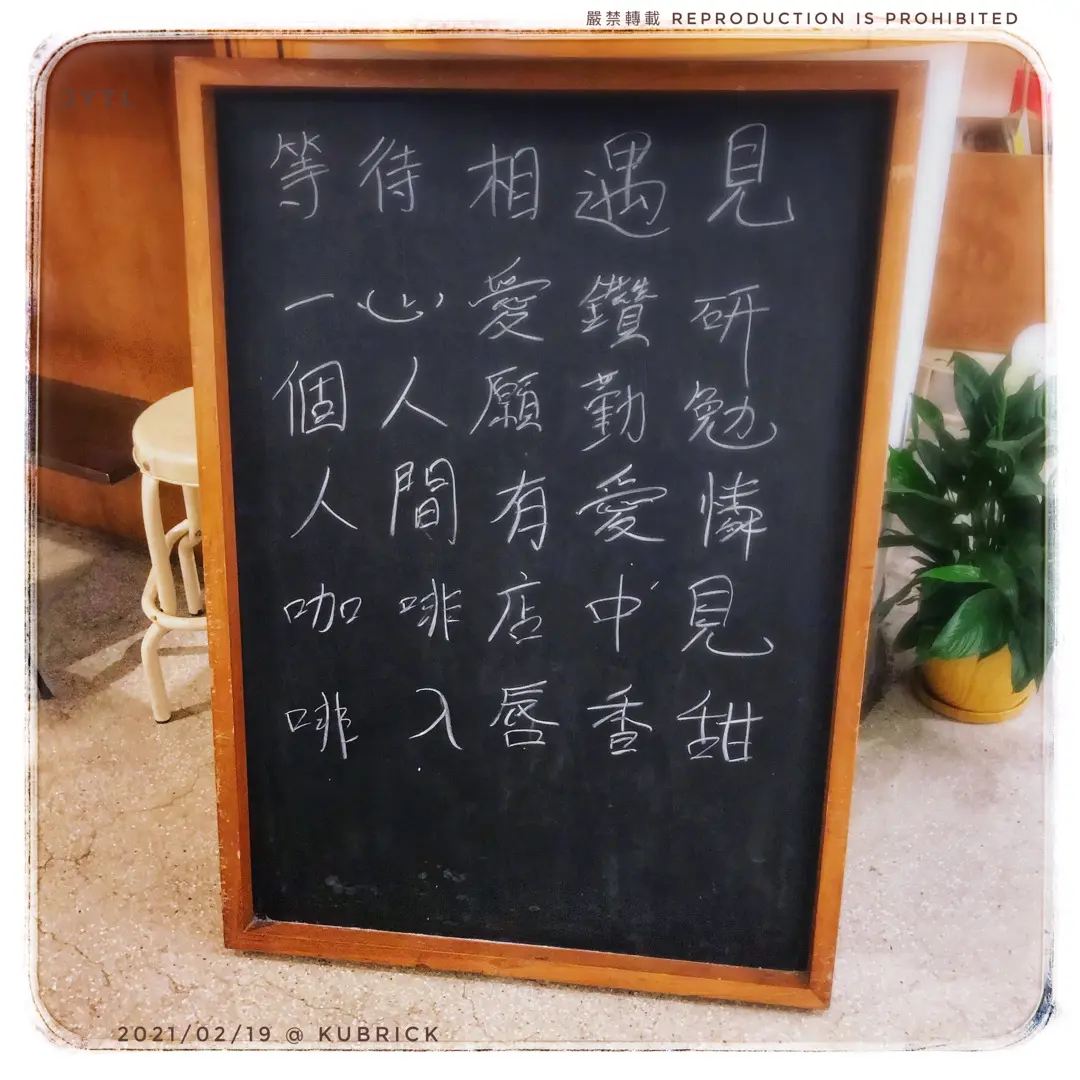 嚴禁轉載 REPRODUCTION IS PROHIBITED
3YTL
等待相遇見
一心愛鑽研
個人願勤勉
人間有愛憐
咖啡店中見
啡入唇香甜
2021/02/19 @ KUBRICK